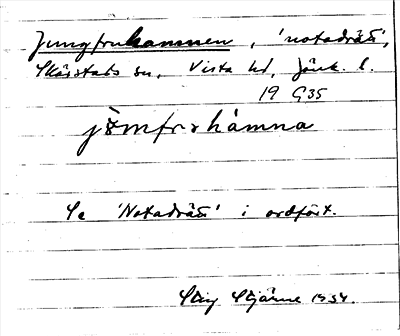 Jungfruhamnen, 'notadrätt',
Skärstads sn, Vista hd, Jönk. l.
19 G35
jòmfrɷhàmna
Se 'Notadrätt' i ordfört.
Stig Stjärne 1934.